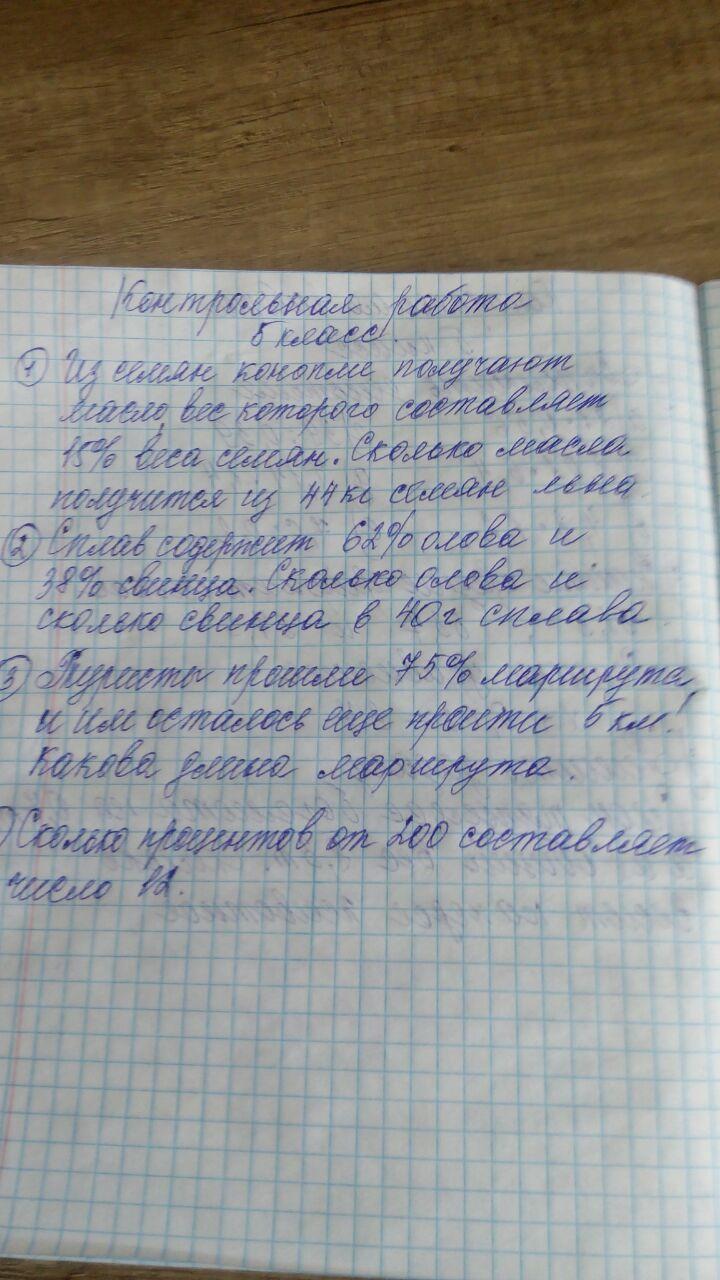 Контрольная работа
5 класс.
① Из семян конопли получают
масло, вес которого составляет
15% веса семян. Сколько масла
получится из 44 кг семян льна
② Сплав содержит 62% олова и
38% свинца. Сколько олова и
сколько свинца в 40 г сплава
3 Туристы прошли 75% маршрута,
и им осталось еще пройти 5 км!
Какова длина маршрута.
) Сколько процентов от 200 составляет
число 12.